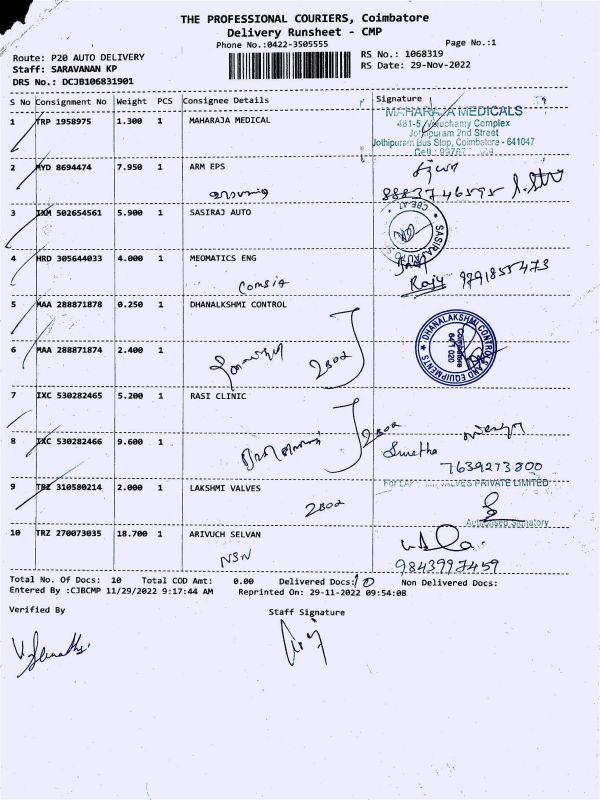 THE PROFESSIONAL COURIERS, Coimbatore
Delivery Runsheet - CMP
Phone No.:0422-3505555
Page No.:1
Route: P20 AUTO DELIVERY
RS No.: 1068319
Staff: SARAVANAN KP
RS Date: 29-Nov-2022
DRS No.: DCJB106831901
S No Consignment No Weight PCS Consignee Details Signature
1 TRP 1958975 1.300 1 MAHARAJA MEDICAL
MAHARAJA MEDICALS
481-5, Veluchamy Complex
Jothipuram 2nd Street
Jothipuram Bus Stop, Coimbatore - 641047
Cell :
2 MYD 8694474 7.950 1 ARM EPS
8883746595
3 IXM 502654561 5.900 1 SASIRAJ AUTO
SASIRAJ AUTO
CBE-47
4 HRD 305644033 4.000 1 MEOMATICS ENG
Raju 9791855473
5 MAA 288871878 0.250 1 DHANALKSHMI CONTROL
DHANALAKSHMI CONTROLS AND EQUIPMENTS
Coimbatore
641 020
6 MAA 288871874 2.400 1
7 IXC 530282465 5.200 1 RASI CLINIC
8 IXC 530282466 9.600 1
Swetha
7639273800
9 TRZ 310580214 2.000 1 LAKSHMI VALVES
For LAKSHMI VALVES PRIVATE LIMITED
Authorised Signatory
10 TRZ 270073035 18.700 1 ARIVUCH SELVAN
NSN
9843997459
Total No. Of Docs: 10 Total COD Amt: 0.00 Delivered Docs: 10 Non Delivered Docs:
Entered By :CJBCMP 11/29/2022 9:17:44 AM Reprinted On: 29-11-2022 09:54:08
Verified By Staff Signature